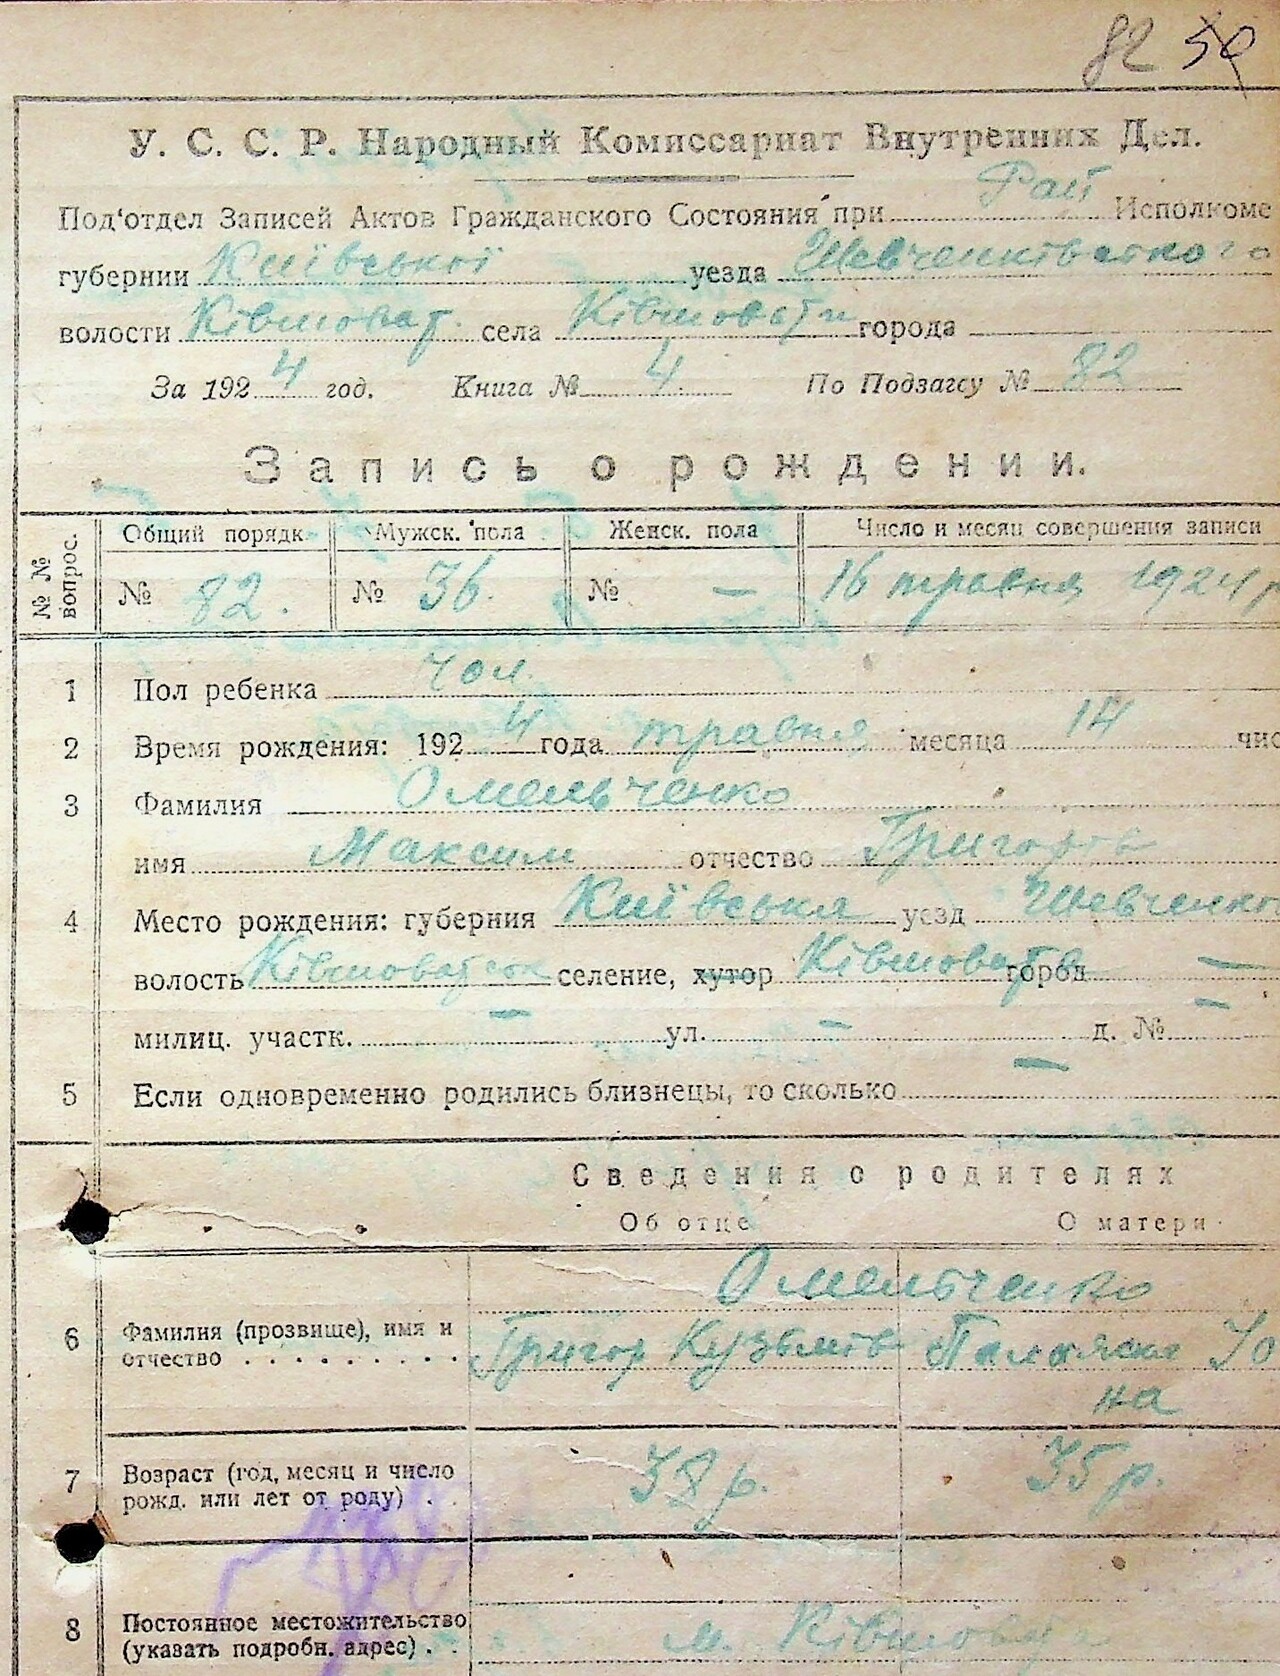 82 50
У. С. С. Р. Народный Комиссариат Внутренних Дел.
Под‘отдел Записей Актов Гражданского Состояния при Рай Исполкоме
губернии Київської уезда Шевченківського
волости Ківшоват. села Ківшовати города
За 1924 год. Книга № 4. По Подзагсу № 82
Запись о рождении.
№ № вопрос.
Общий порядк. Мужск. пола Женск. пола Число и месяц совершения записи
№ 82. № 36. № — 16 травня 1924 р
1 Пол ребенка чол.
2 Время рождения: 1924 года травня месяца 14 чис
3 Фамилия Омельченко
имя Максим отчество Григорів
4 Место рождения: губерния Київська уезд Шевченко
волость селение, хутор Ківшовата город —
милиц. участк. — ул. — д. № —
5 Если одновременно родились близнецы, то сколько —
Сведения о родителях
Об отце О матери
Омельченко
6 Фамилия (прозвище), имя и Григор Кузьмів
отчество . . . . . . . . . .
на
7 Возраст (год, месяц и число 38 р. 35 р.
рожд. или лет от роду) . .
8 Постоянное местожительство
(указать подробн. адрес) . . м. Ківшовата